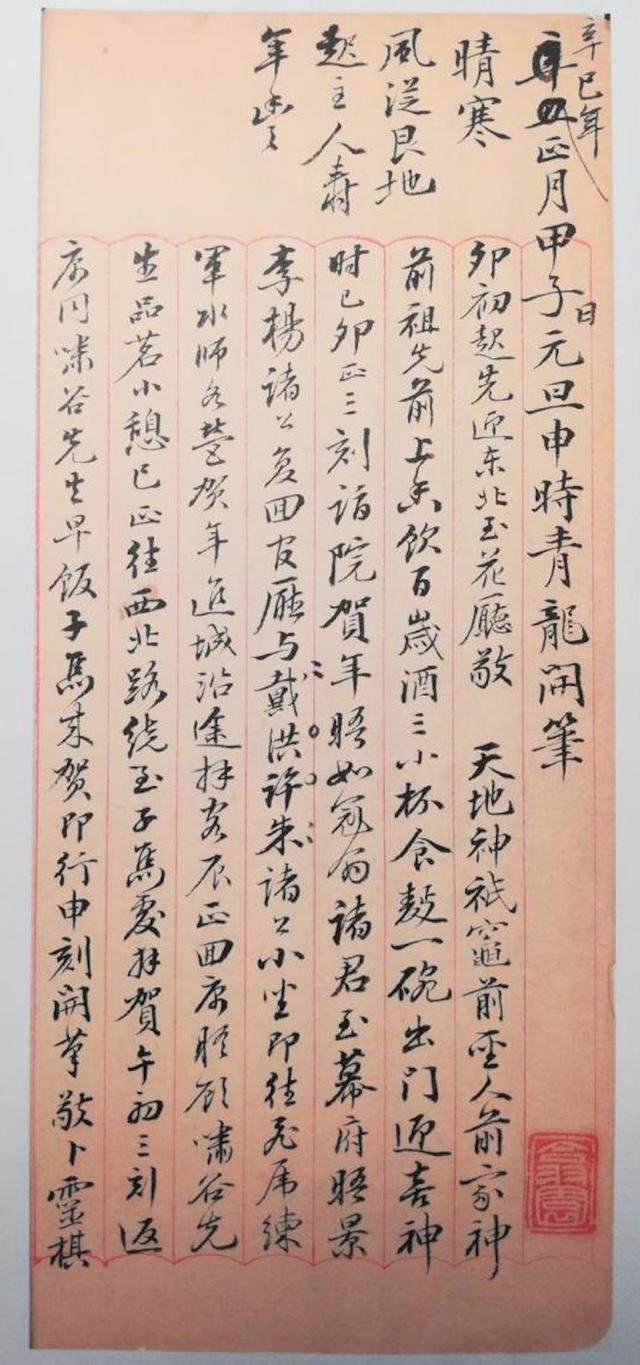 辛巳年
正月甲子日元旦申時青龍開筆
晴寒
風從艮地
起主人壽
年豐
卯初起先迎东北至花廳敬 天地神祇竈前聖人前家神
前祖先前上香飲百歲酒三小杯食麪一碗出門迎喜神
时已卯正三刻詣院賀年晤如冠翁諸君至幕府晤景
李楊諸公复回官廰与戴洪许朱諸公小坐即往飞虎練
軍水师各营贺年進城沿途拜客辰正回寓晤顾嘯谷先
生品茗小憩巳正往西北路绕至子禹處拜賀午初三刻返
寓同嘯谷先生早饭子禹来贺即行申刻開筆敬卜靈棋